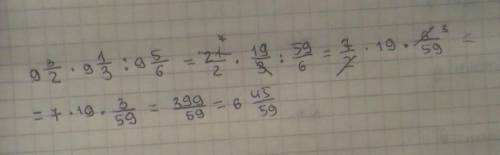 9 3/2 · 9 1/3 : 9 5/6 = 21/2 7 · 19/3 : 59/6 = 7/2 · 19 · 6/59 3 =
= 7 · 19 · 3/59 = 399/59 = 6 45/59